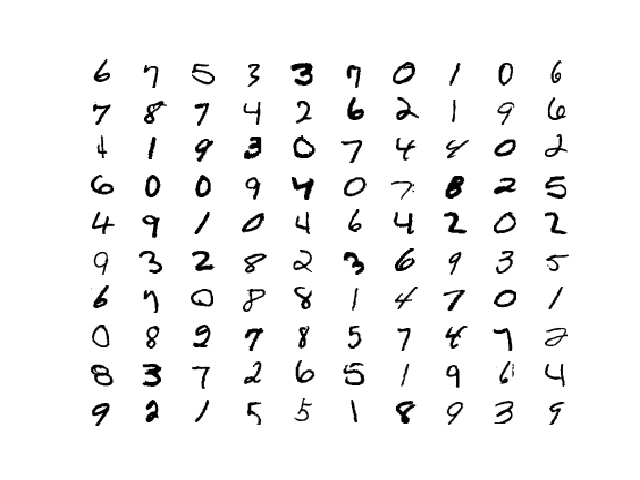 6 7 5 3 3 7 0 1 0 6
7 8 7 4 2 6 2 1 9 6
4 1 9 3 0 7 4 4 0 2
6 0 0 9 4 0 7 8 2 5
4 9 1 0 4 6 4 2 0 2
9 3 2 8 2 3 6 9 3 5
6 7 0 8 8 1 4 7 0 1
0 8 9 7 8 5 7 4 7 2
8 3 7 2 6 5 1 9 6 4
9 2 1 5 5 1 8 9 3 9